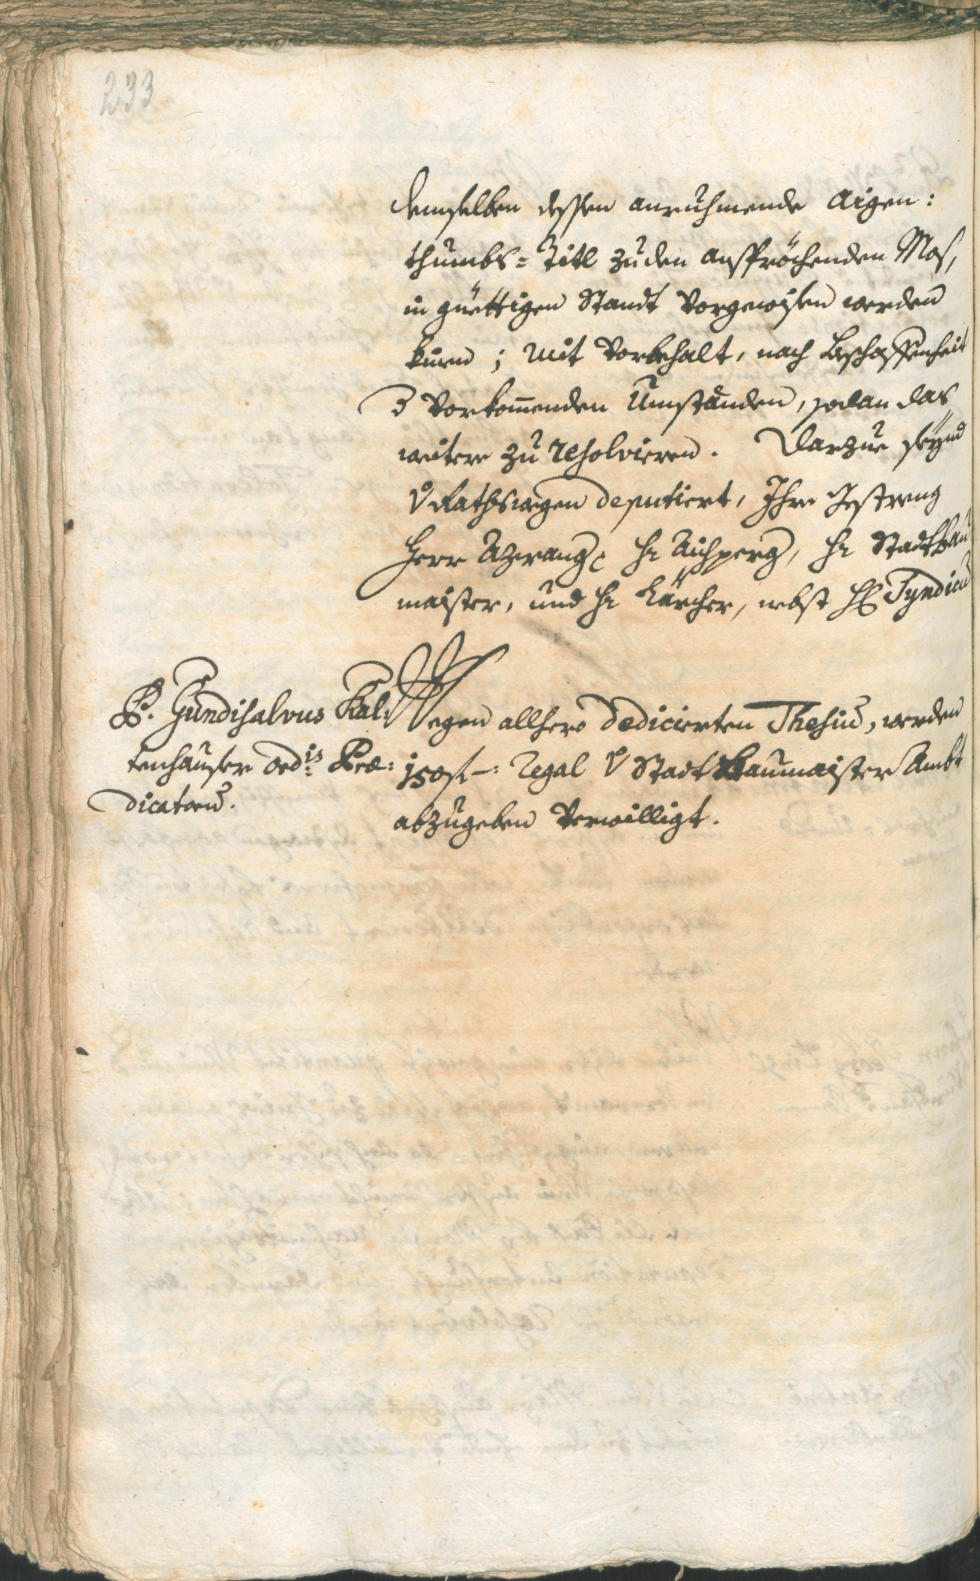 233
demselben dessen anruhmende Aigen:
thumbs= Titl zu den anspröchenden Mos,
in güettigen Standt vorgewisen werden
kuned; mit vorbehalt, nach Beschaffenheit
vorkommenden Umständen, sodan das
weitere zu resolvieren. Darzue seynd
Rathswegen deputiert, Ihre Gestreng
Herr Azwang, H: Aichperg, H: Stadtbau
maister, und H: Lärcher, nebst H: Syndicus
P. Gundisalvus Kal:
tenhauser ord:is Præ:
dicatorum.
Wegen allhero dedicierten Thesium, werden
150 f –: regal Stadt Baumaister Ambt
abzugeben verwilligt.